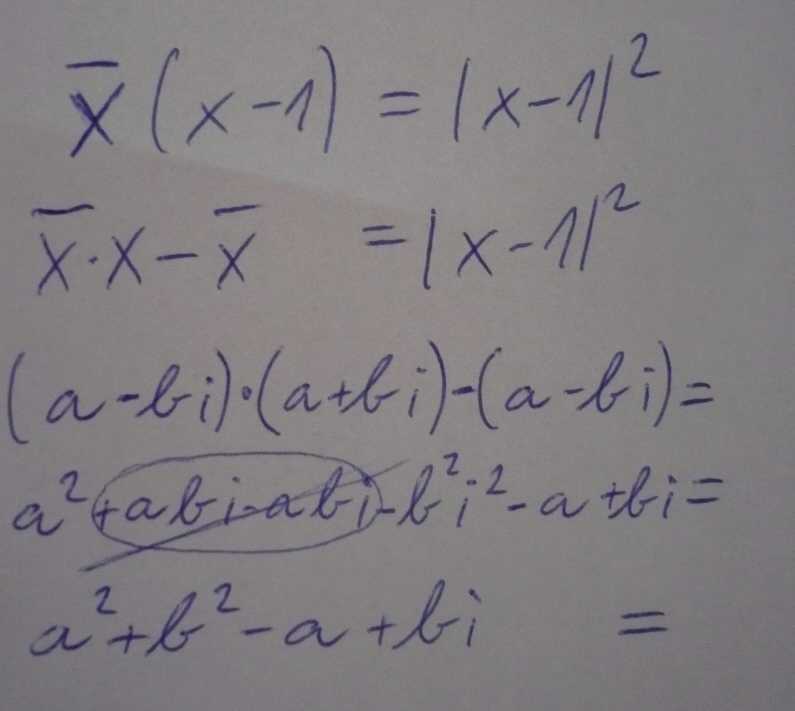 x̅(x-1) = |x-1|²
x̅·x - x̅ = |x-1|²
(a-bi)·(a+bi)-(a-bi)=
a²+abi-abi-b²i²-a+bi=
a²+b²-a+bi =